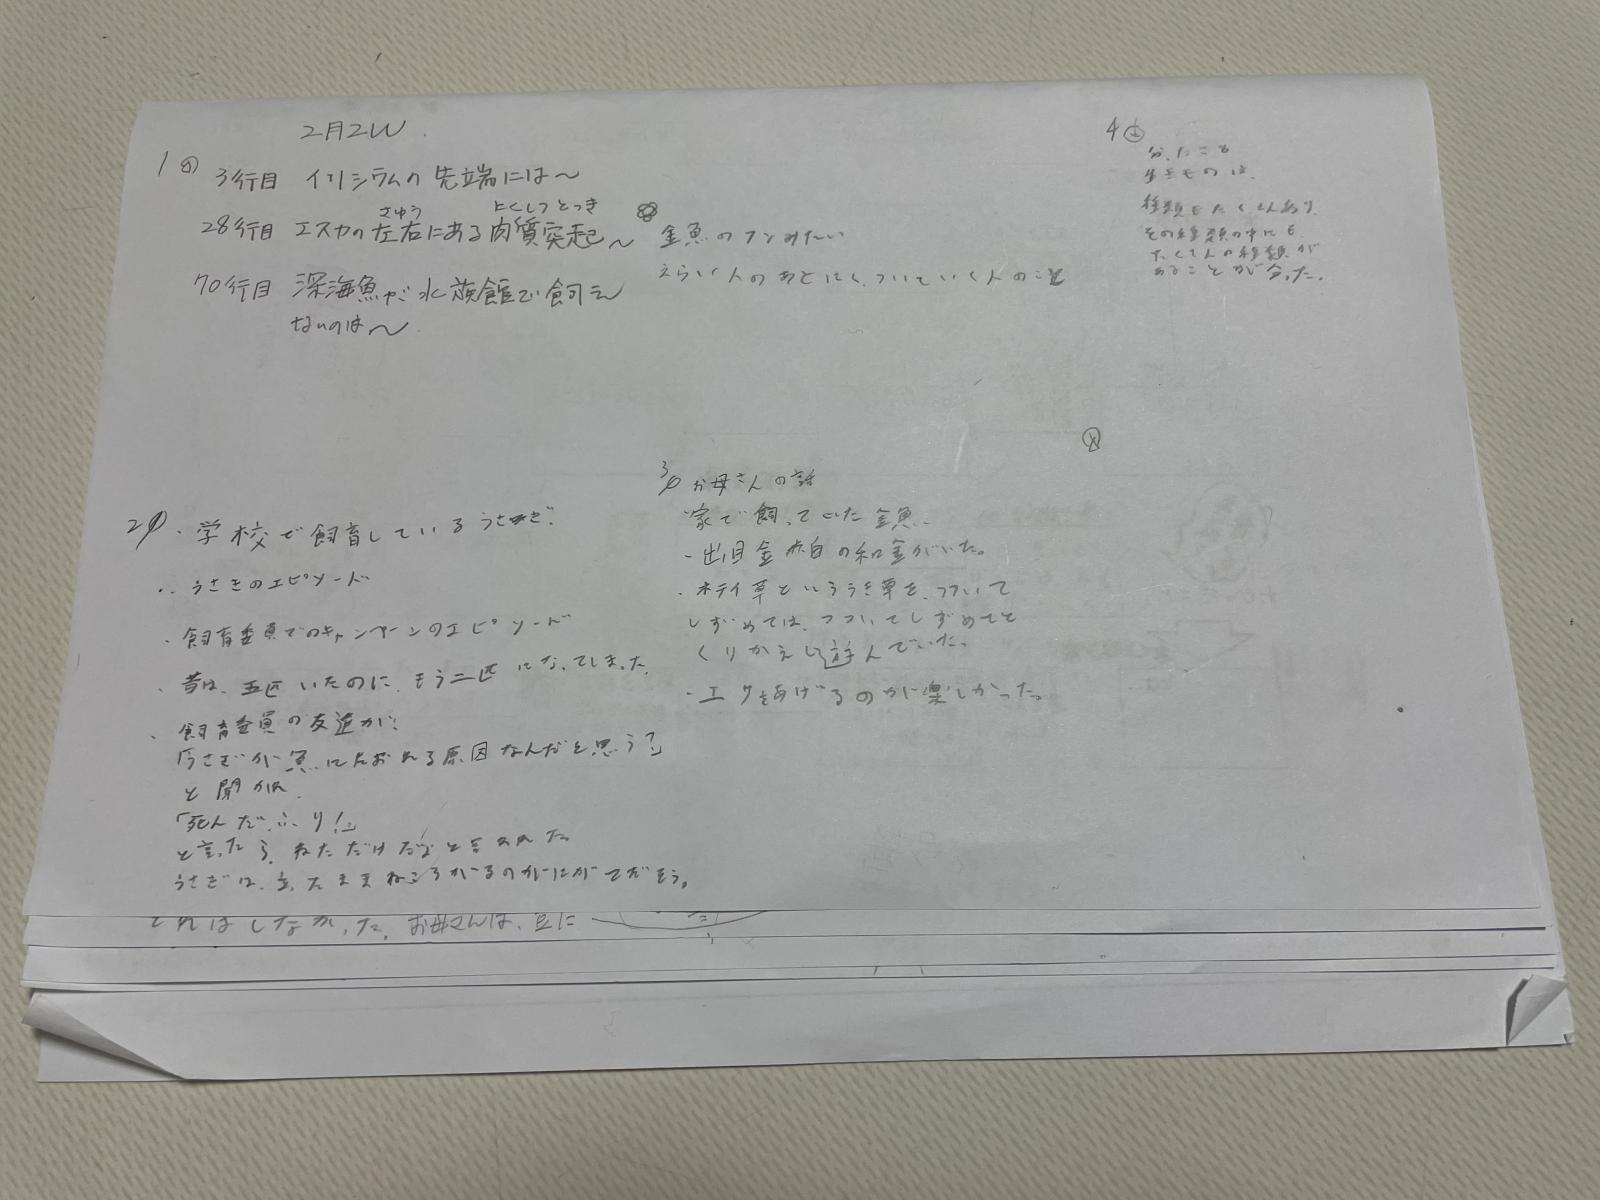 2月2W.
1の
3行目 イリシウムの先端には〜
さゆう にくしつとっき
28行目 エスカの左右にある肉質突起〜
70行目 深海魚が水族館で飼え
ないのは〜
金魚のフンみたい
えらい人のあとにくっついていく人のこと
4
分かったこと
生きものは、
種類もたくさんあり、
その種類の中にも、
たくさんの種類が
あることが分った。
2
・学校で飼育しているうさぎ。
・うさぎのエピソード
・飼育委員でのキャンペーンのエピソード
・昔は、五匹いたのに、もう二匹になってしまった。
・飼育委員の友達が、
「うさぎが
原因なんだと思う?」
と聞かれ
「死んだふり!」
と言ったら、ねただけだよと言われた
うさぎは、立ったままねころがるのがにがてだそう。
3 お母さんの話
家で飼っていた金魚、
・出目金 赤白の和金がいた。
・ホテイ草といううき草を、つついて
しずめては、つついてしずめてと
くりかえし遊んでいた。
・エサをあげるのが楽しかった。
それはしなかった。お母さんは、豆に